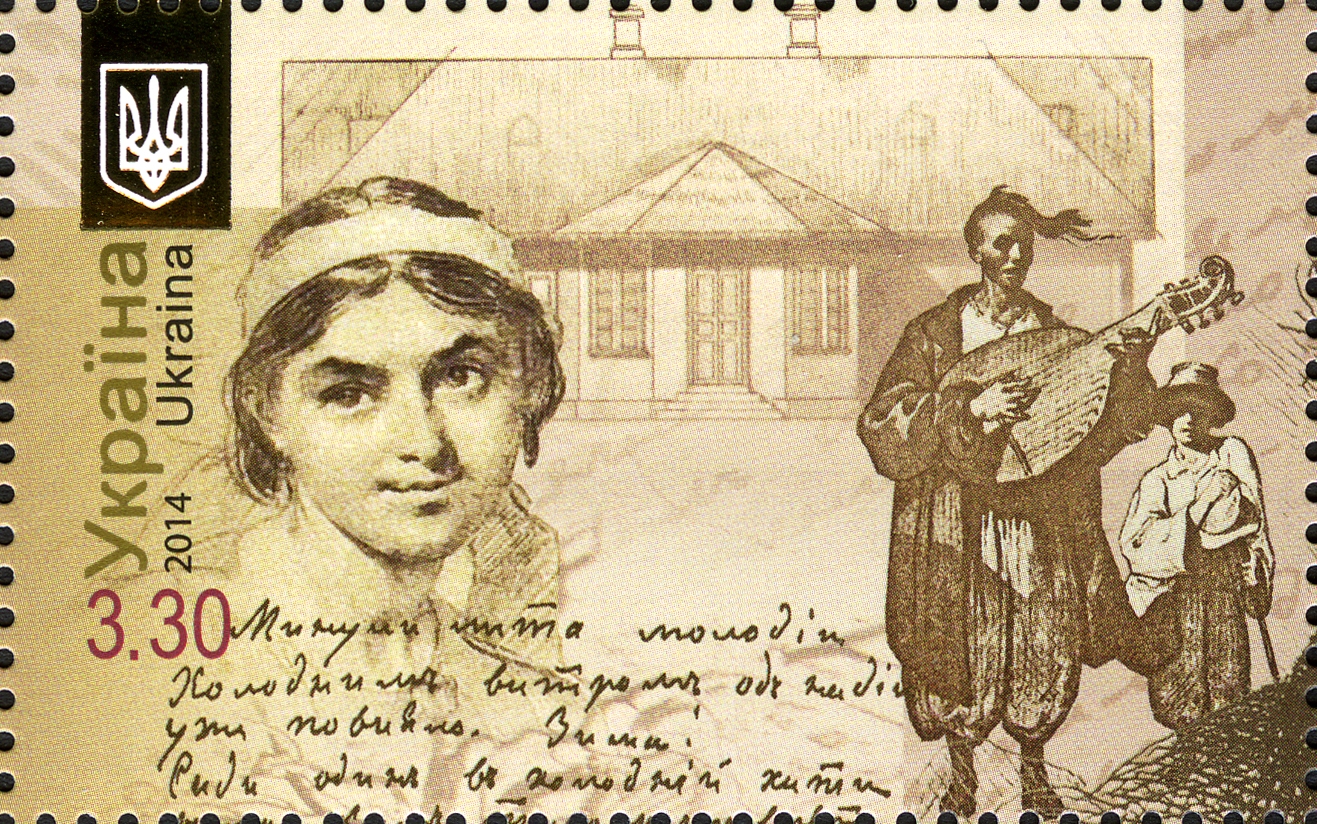 Україна
2014 Ukraina
3.30
Минули лита молодіи
Холоднимъ витромъ одъ надіи
уже повіяло. Зима!
Сиди одинъ въ холодній хати